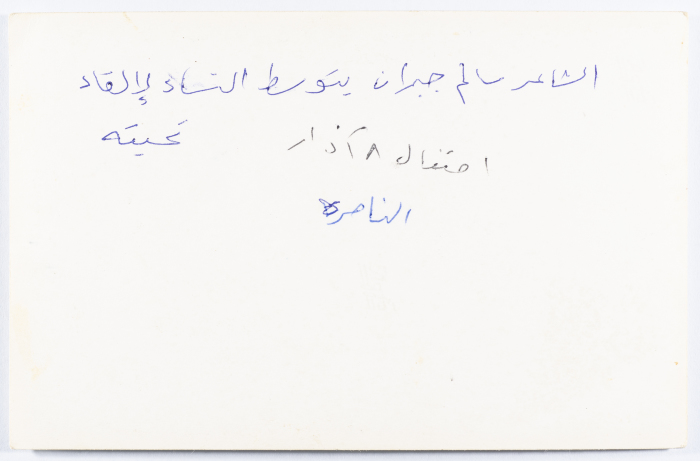 الشاعر سالم جبران يتوسط النساء لإلقاء
تحيته
احتفال ٨ آذار
الناصرة